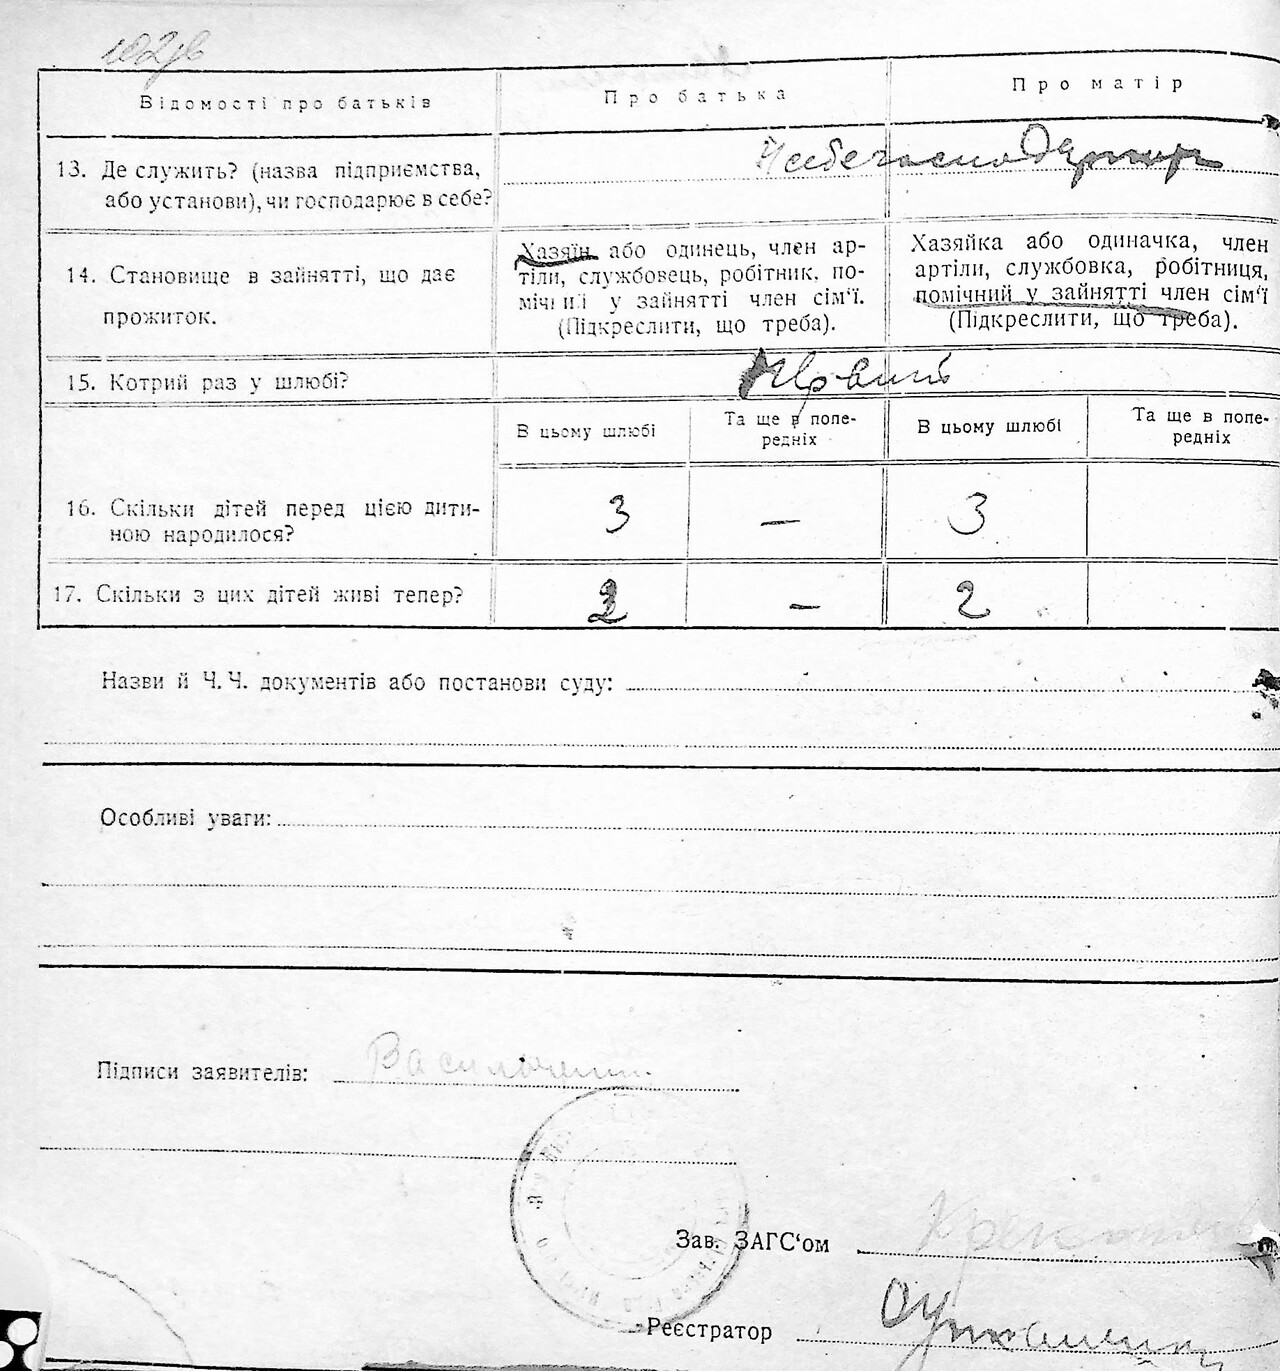 Відомості про батьків
Про батька
Про матір
13. Де служить? (назва підприємства,
або установи), чи господарює в себе?
14. Становище в зайнятті, що дає
прожиток.
Хазяїн або одинець, член ар-
тіли, службовець, робітник, по-
мічний у зайнятті член сім'ї.
(Підкреслити, що треба).
Хазяйка або одиначка, член
артіли, службовка, робітниця,
помічний у зайнятті член сім'ї
(Підкреслити, що треба).
15. Котрий раз у шлюбі?
Первий
В цьому шлюбі
Та ще в попе-
редніх
В цьому шлюбі
Та ще в попе-
редніх
16. Скільки дітей перед цією дити-
ною народилося?
3 — 3
17. Скільки з цих дітей живі тепер?
2 — 2
Назви й Ч. Ч. документів або постанови суду:
Особливі уваги:
Підписи заявителів:
Зав. ЗАГС'ом
Реєстратор